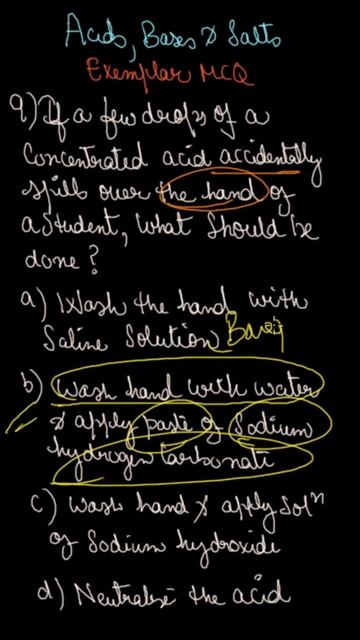 Acids, Bases & Salts
Exemplar MCQ
9) If a few drops of a
Concentrated acid accidentally
spills over the hand of
a Student, What should be
done?
a) Wash the hand with
Saline Solution
b) Wash hand with water
& apply paste of Sodium
hydrogen Carbonate
c) Wash hand & apply Solⁿ
of Sodium hydroxide
d) Neutralise the acid